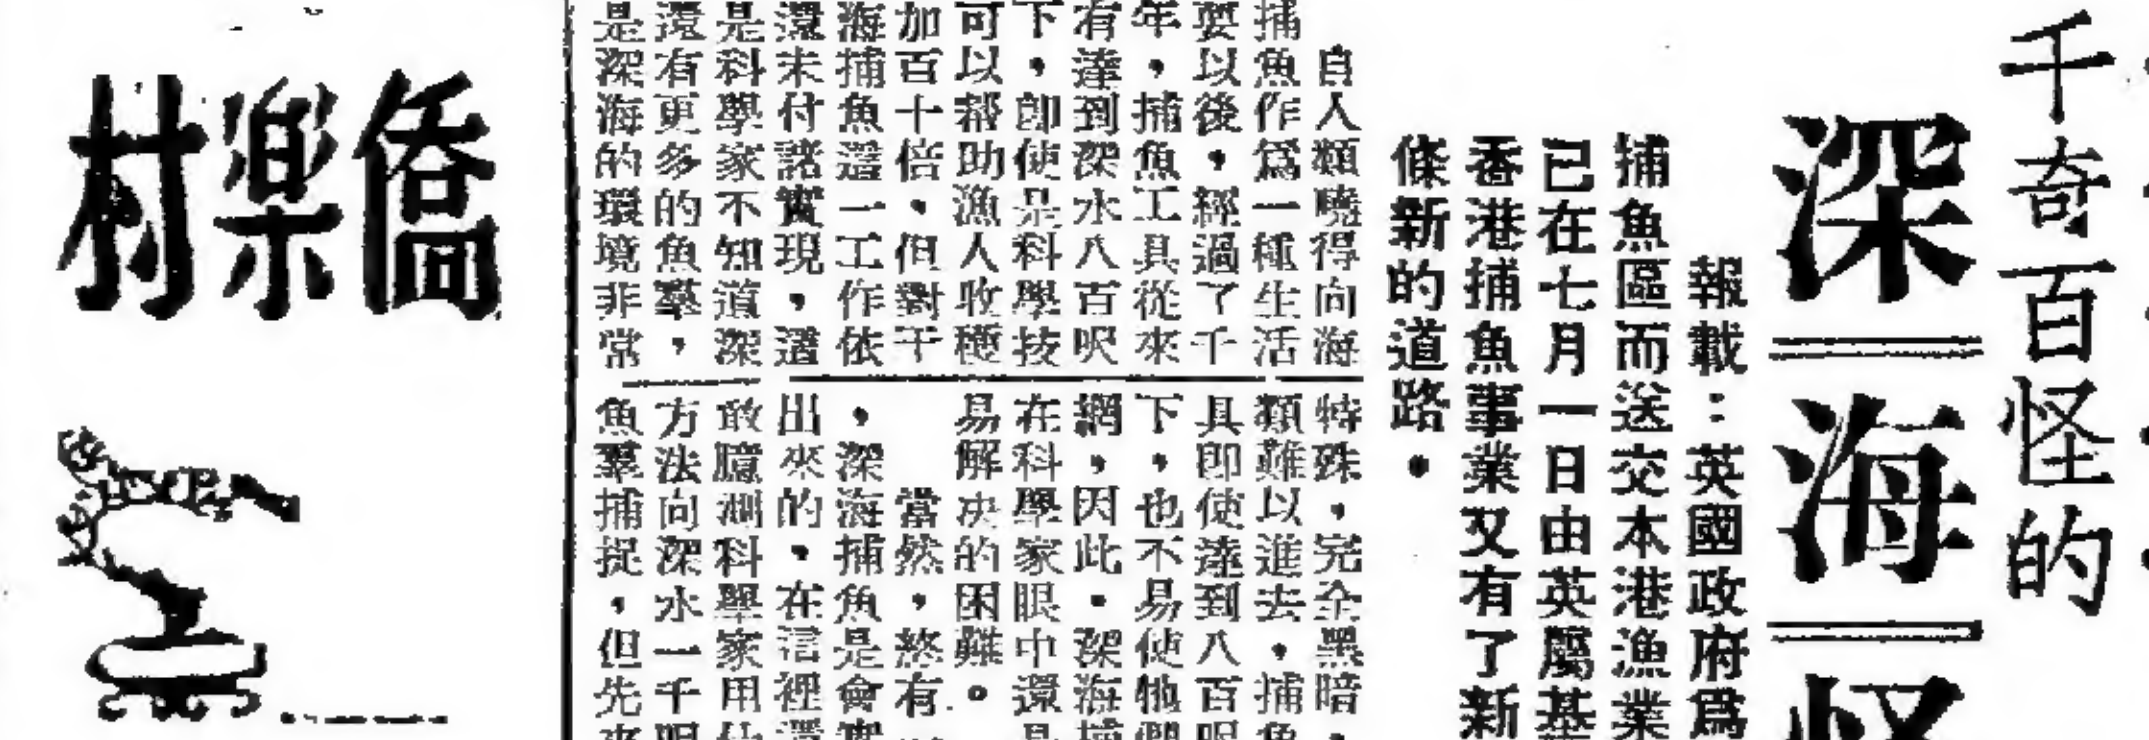 千奇百怪的
深海
報載：英國政府爲
捕魚區而送交本港漁業
已在七月一日由英屬基
香港捕魚事業又有了新
條新的道路。
自人類曉得向海
捕魚作爲一種生活
要以後，經過了千
年，捕魚工具從來
有達到深水八百呎
下，即使是科學技
可以幫助漁人收穫
加百十倍，但對于
海捕魚這一工作依
還未付諸實現，這
是科學家不知道深
還有更多的魚羣，
是深海的環境非常
特殊，完全黑暗，
類難以進去，捕魚
具即使達到八百呎
下，也不易使牠們
網，因此，深海捕
在科學家眼中還是
易解决的困難。
當然，終有
，深海捕魚是會實
出來的，在這裡還
敢臆測科學家用什
方法向深水一千呎
魚羣捕捉，但先來
僑樂村